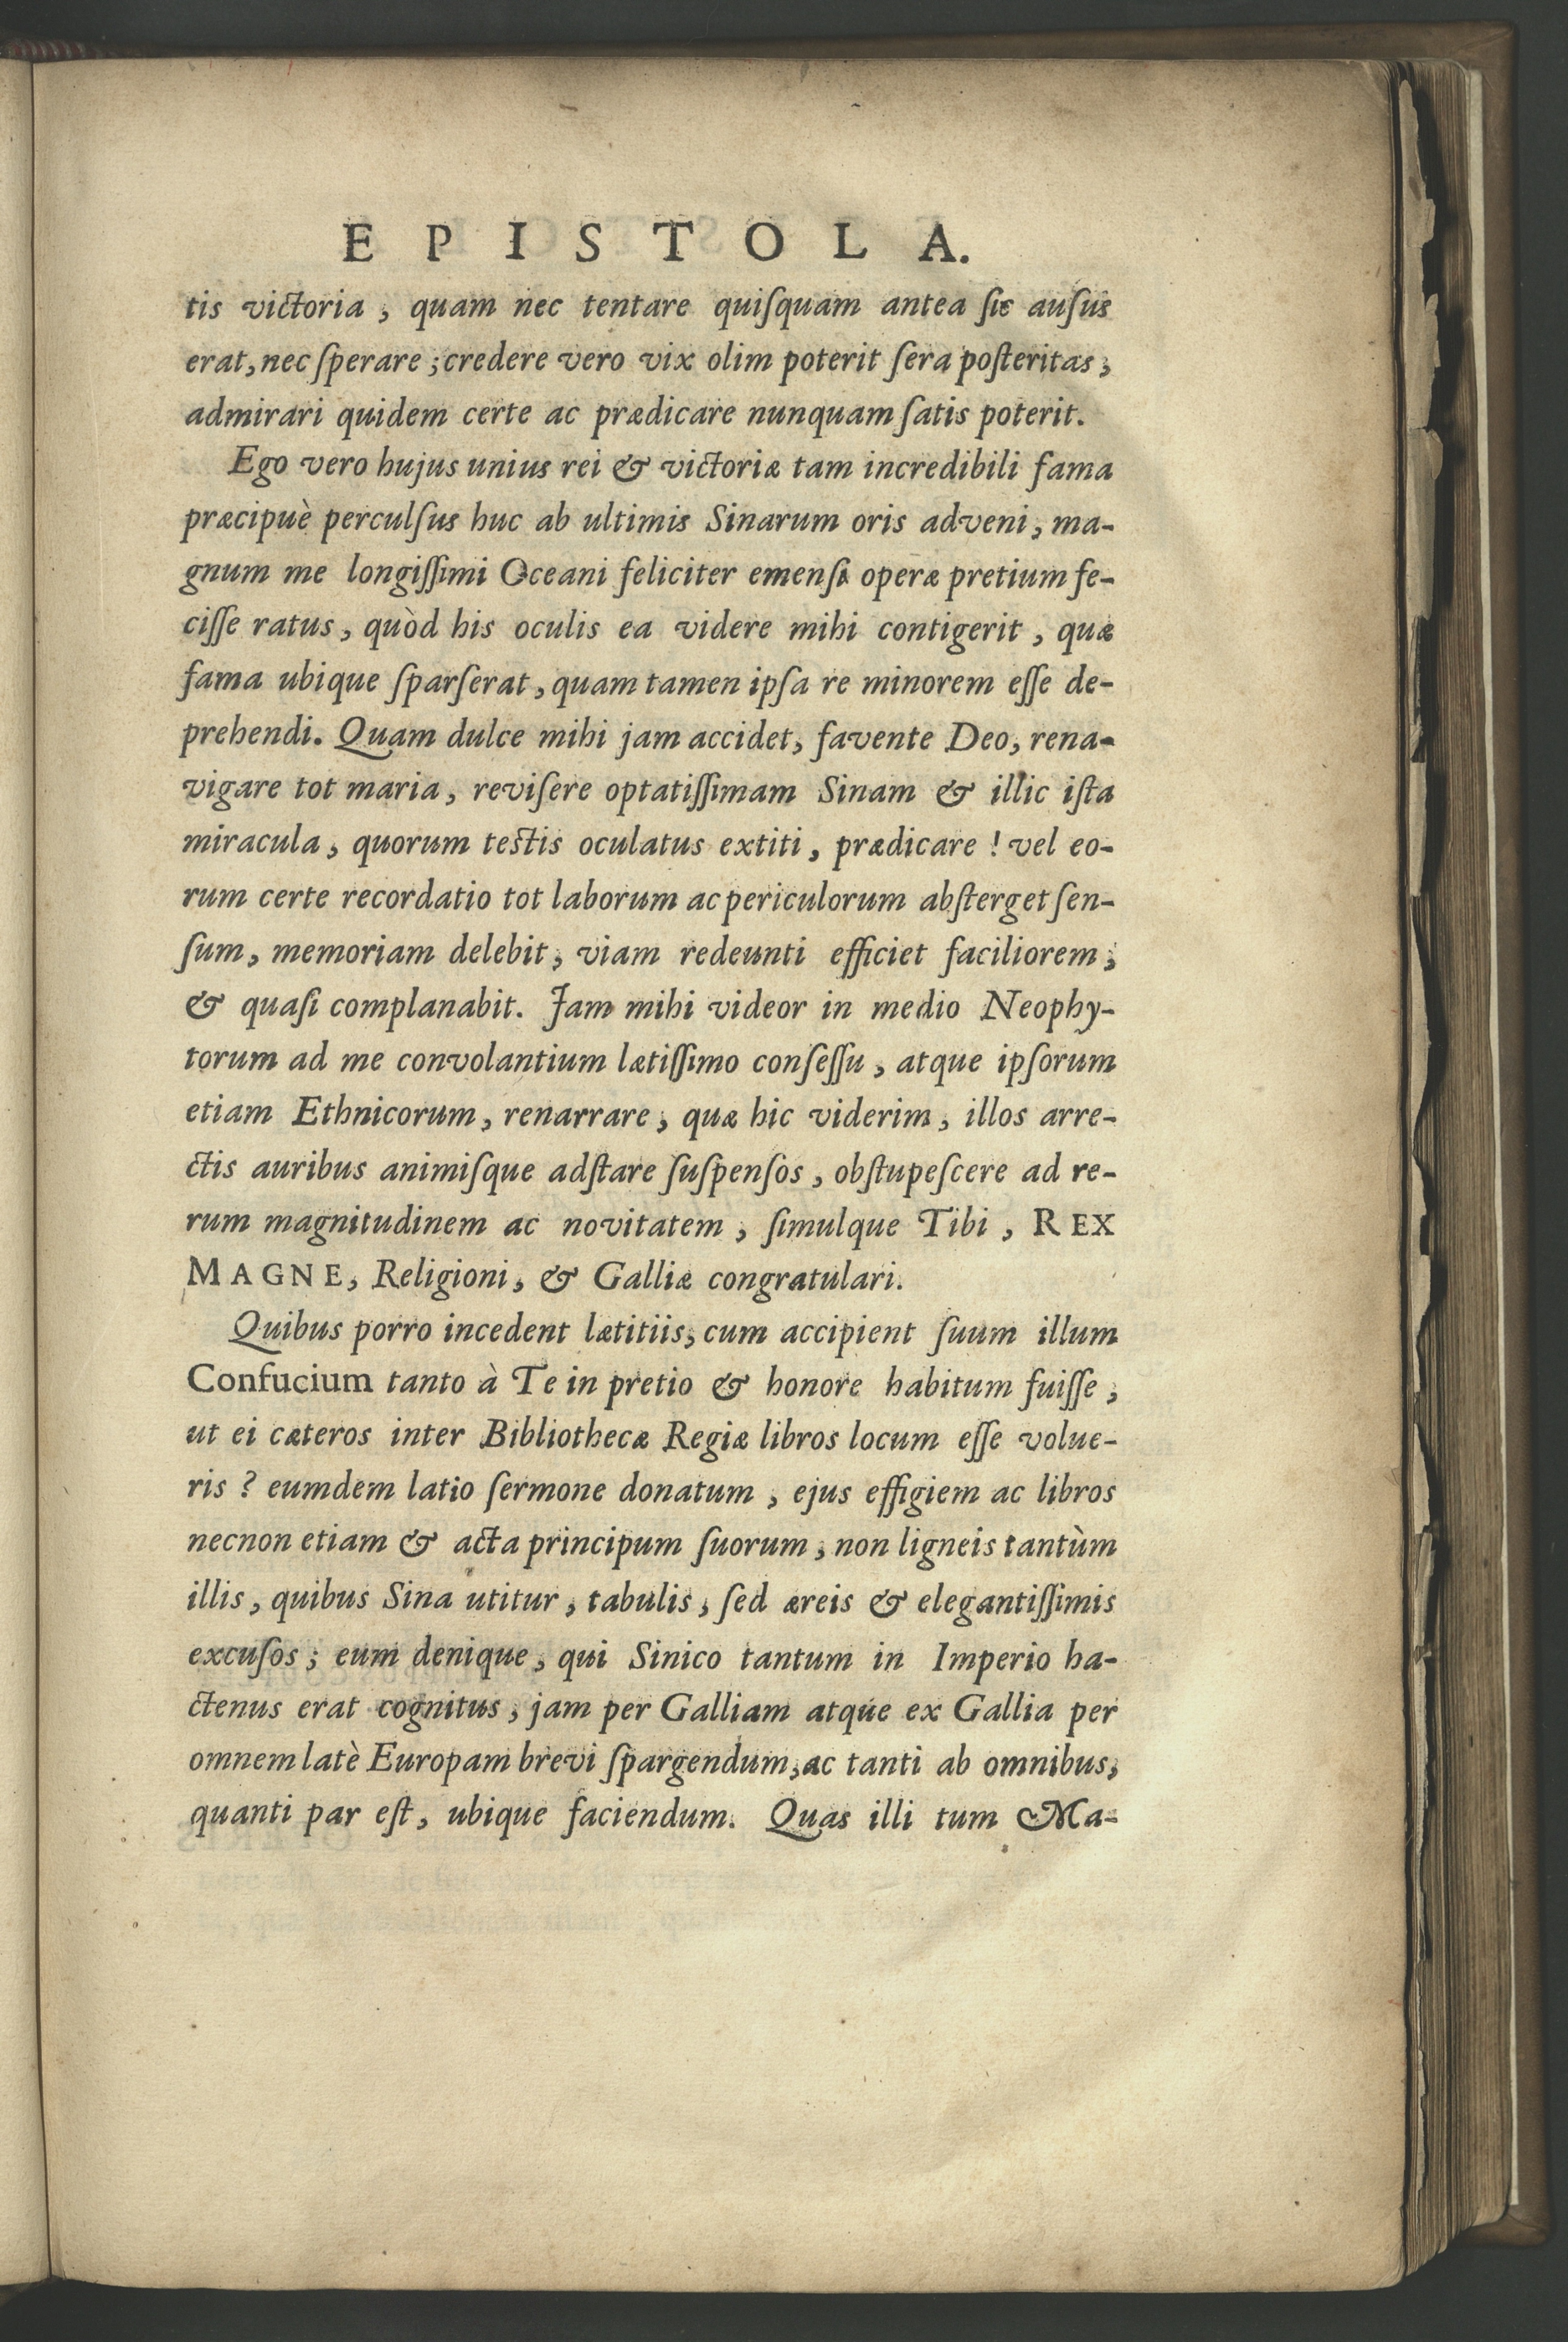 EPISTOLA.
tis victoria, quam nec tentare quiſquam antea ſic auſus
erat, nec ſperare; credere vero vix olim poterit ſera poſteritas,
admirari quidem certe ac prædicare nunquam ſatis poterit.
Ego vero hujus unius rei & victoriæ tam incredibili fama
præcipuè perculſus huc ab ultimis Sinarum oris adveni, ma-
gnum me longiſſimi Oceani feliciter emenſi operæ pretium fe-
ciſſe ratus, quòd his oculis ea videre mihi contigerit, quæ
fama ubique ſparſerat, quam tamen ipſa re minorem eſſe de-
prehendi. Quam dulce mihi jam accidet, favente Deo, rena-
vigare tot maria, reviſere optatiſſimam Sinam & illic iſta
miracula, quorum testis oculatus extiti, prædicare! vel eo-
rum certe recordatio tot laborum ac periculorum abſterget ſen-
ſum, memoriam delebit, viam redeunti efficiet faciliorem,
& quaſi complanabit. Jam mihi videor in medio Neophy-
torum ad me convolantium lætiſſimo conſeſſu, atque ipſorum
etiam Ethnicorum, renarrare, quæ hic viderim, illos arre-
ctis auribus animiſque adſtare ſuſpenſos, obſtupeſcere ad re-
rum magnitudinem ac novitatem, ſimulque Tibi, REX
MAGNE, Religioni, & Galliæ congratulari.
Quibus porro incedent lætitiis, cum accipient ſuum illum
Confucium tanto à Te in pretio & honore habitum fuiſſe,
ut ei cæteros inter Bibliothecæ Regiæ libros locum eſſe volue-
ris? eumdem latio ſermone donatum, ejus effigiem ac libros
necnon etiam & acta principum ſuorum, non ligneis tantùm
illis, quibus Sina utitur, tabulis, ſed æreis & elegantiſſimis
excuſos; eum denique, qui Sinico tantum in Imperio ha-
ctenus erat cognitus, jam per Galliam atque ex Gallia per
omnem latè Europam brevi ſpargendum, ac tanti ab omnibus,
quanti par eſt, ubique faciendum. Quas illi tum Ma-